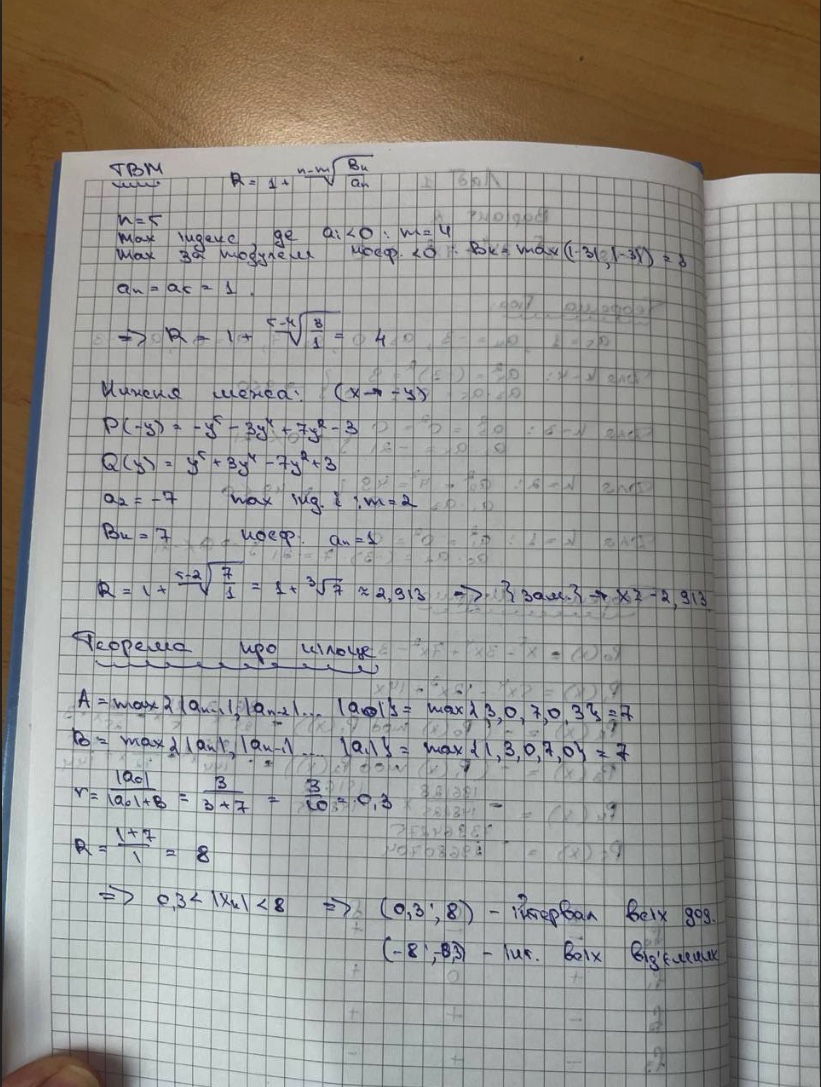 ТВМ R = 1 + ⁿ⁻ᵐ√(Bк/aₙ)
n=5
Max індекс, де aᵢ<0 : m=4
Max за модулем коеф. <0 : Bк = max(|-3|, |-3|) = 3
aₙ = a₅ = 1.
=> R = 1 + ⁵⁻⁴√(3/1) = 4
Нижня межа: (x → -y)
P(-y) = -y⁵ - 3y⁴ + 7y² - 3
Q(y) = y⁵ + 3y⁴ - 7y² + 3
a₂ = -7 max інд. i : m=2
Bк = 7 коеф. aₙ=1
R = 1 + ⁵⁻²√(7/1) = 1 + ³√7 ≈ 2,913 => {зам.} → x ≥ -2,913
Теорема про кільце
A = max{|aₙ₋₁|, |aₙ₋₂| ... |a₀|} = max{3, 0, 7, 0, 3} = 7
B = max{|aₙ|, |aₙ₋₁| ... |a₁|} = max{1, 3, 0, 7, 0} = 7
r = |a₀|/(|a₀|+B) = 3/(3+7) = 3/10 = 0,3
R = (1+7)/1 = 8
=> 0,3 < |xк| < 8 => (0,3 ; 8) - інтервал всіх дод.
(-8 ; -0,3) - інт. всіх від'ємних